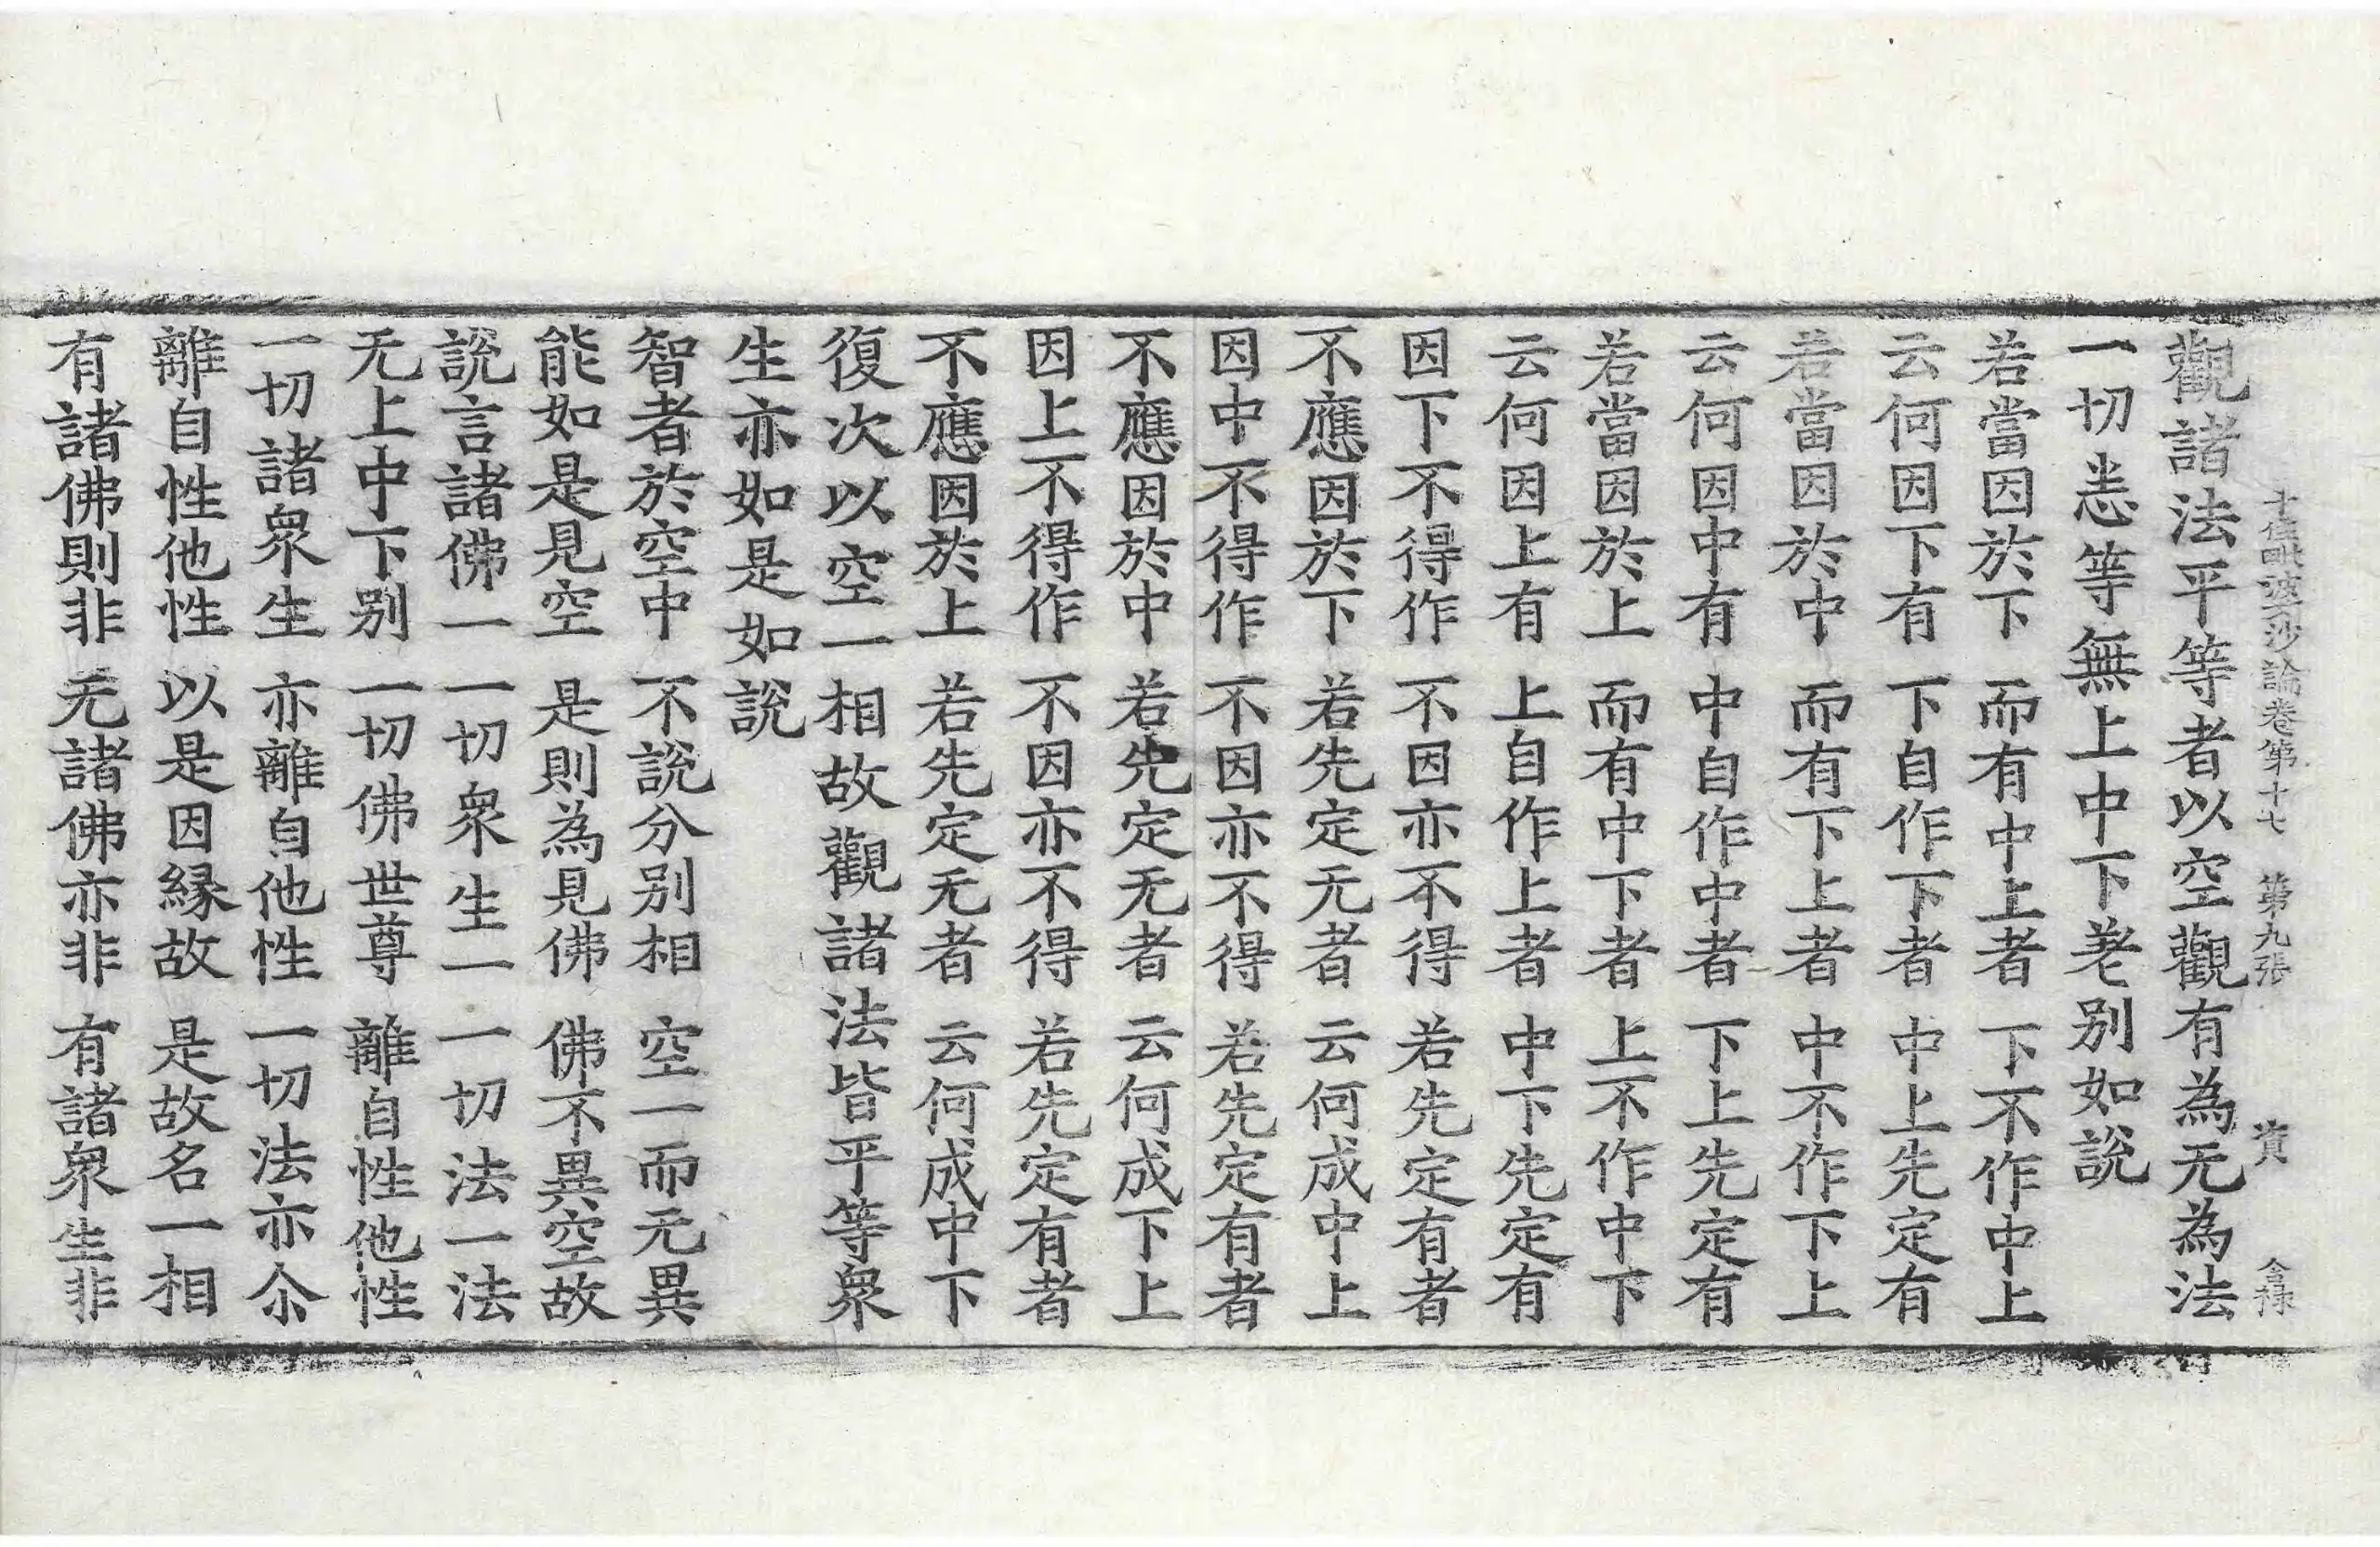 十住毗婆沙論卷第十七 第九張 賞 令禄
觀諸法平等者以空觀有為无為法
一切恙等無上中下差别如說
若當因於下 而有中上者 下不作中上
云何因下有 下自作下者 中上先定有
若當因於中 而有下上者 中不作下上
云何因中有 中自作中者 下上先定有
若當因於上 而有中下者 上不作中下
云何因上有 上自作上者 中下先定有
因下不得作 不因亦不得 若先定有者
不應因於下 若先定无者 云何成中上
因中不得作 不因亦不得 若先定有者
不應因於中 若先定无者 云何成下上
因上不得作 不因亦不得 若先定有者
不應因於上 若先定无者 云何成中下
復次以空一相故觀諸法皆平等衆
生亦如是如說
智者於空中 不說分别相 空一而无異
能如是見空 是則為見佛 佛不異空故
說言諸佛一 一切衆生一 一切法一法
无上中下别 一切佛世尊 離自性他性
一切諸衆生 亦離自他性 一切法亦尒
離自性他性 以是因縁故 是故名一相
有諸佛則非 无諸佛亦非 有諸衆生非